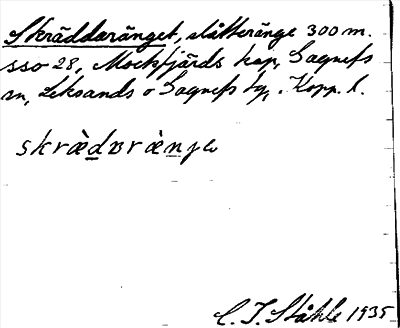 Skräddaränget, slåtteränge 300 m.
sso 28, Mockfjärds kap, Sagnefs
sn, Leksands o Gagnefs tg, Kopp. l.
skrædɒrænjə
C. I. Ståhle 1935